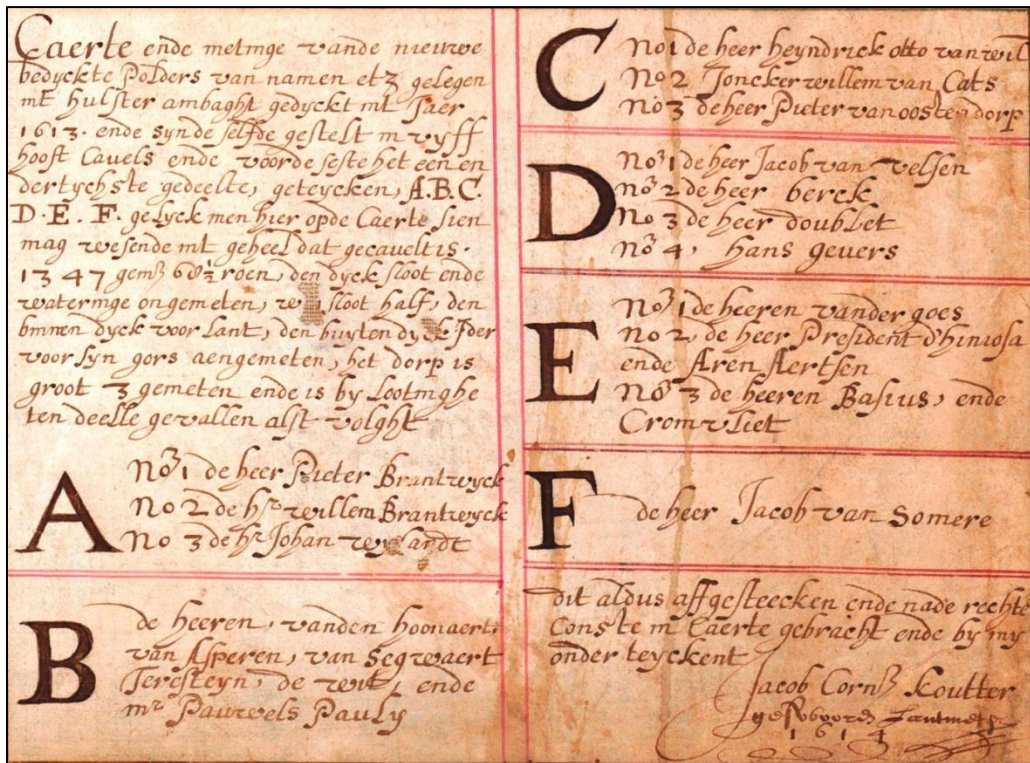 Caerte ende metinge vande nieuwe
bedyckte Polders van namen etz gelegen
int hulster ambaght gedyckt int Jaer
1613. ende synde selfde gestelt in vyff
hooft Cavels ende voorde seste het een en
dertychste gedeelte, geteycken, A.B.C.
D.E.F. gelyck men hier opde Caerte sien
mag wesende int geheel dat gecavelt is.
1347 gemz 68½ roen, den dyck sloot ende
wateringe ongemeten, sloot half, den
binnen dyck voor lant, den buyten dyck Ider
voor syn gors aengemeten, het dorp is
groot 3 gemeten ende is by Lootinghe
ten deelle gevallen alst volght
A
No 1 de heer Pieter Brantwyck
No 2 de hr willem Brantwyck
No 3 de hr Johan
B
de heeren, vanden hoonaert,
van Asperen, van Segwaert
Teresteyn, de wit, ende
mr Pauwels Pauly
C
No 1 de heer heyndrick otto van wil
No 2 Joncker willem van Cats
No 3 de heer Pieter van oostendorp
D
No 1 de heer Jacob van velsen
No 2 de heer berck
No 3 de heer doublet
No 4, hans gevers
E
No 1 de heeren vander goes
No 2, de heer President d'hiniosa
ende Aren Aertsen
No 3 de heeren Basius, ende
Cromvliet
F
de heer Jacob van Somere
dit aldus affgesteecken ende nade rechte
Conste in Caerte gebracht ende by my
onder teyckent
Jacob Cornz Koutter
gesworen Lantmeter
1614